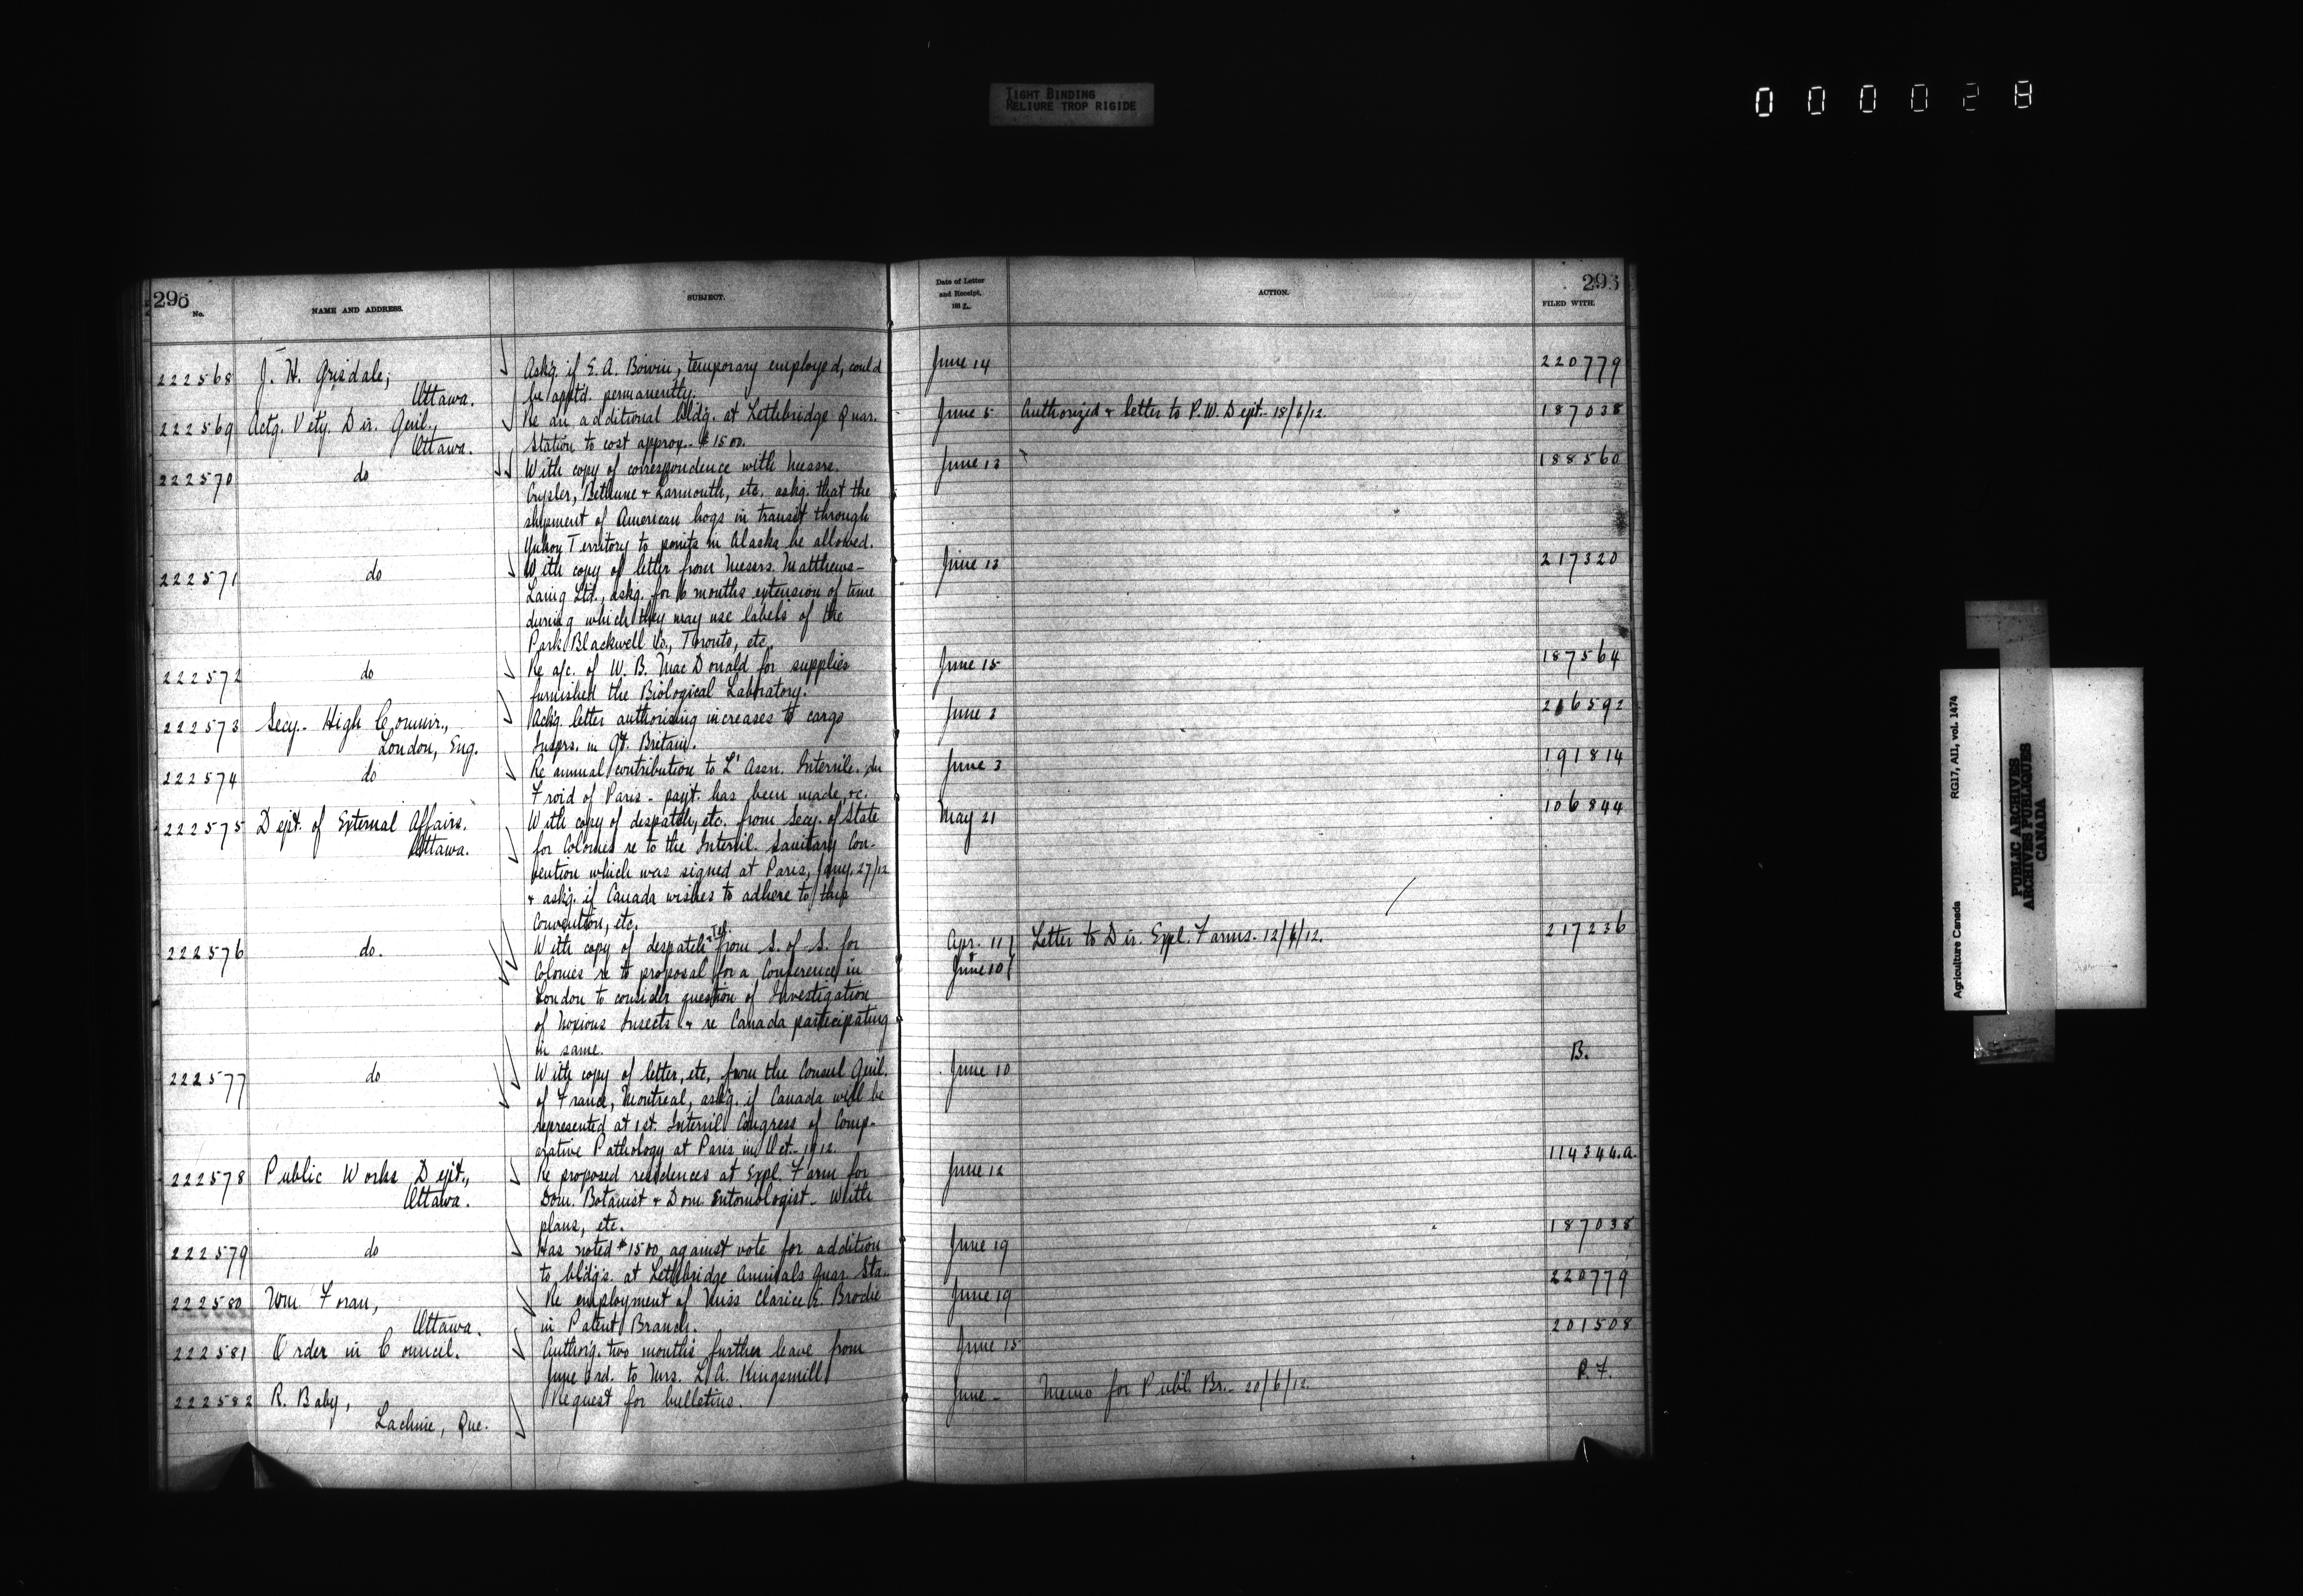 TIGHT BINDING
RELIURE TROP RIGIDE
000028
296
No.
NAME AND ADDRESS.
SUBJECT.
222568
J. H. Grisdale,
Ottawa.
Askg. if E. A. Boivin, temporary employed, could
be apptd. permanently.
222569
Actg. Vety. Dir. Genl.,
Ottawa.
Re an additional bldg. at Lethbridge Quar.
Station to cost approx. $1500.
222570
do
With copy of correspondence with Messrs.
Crysler, Bethune & Larmouth, etc. askg. that the
shipment of American hogs in transit through
Yukon Territory to points in Alaska be allowed.
222571
do
With copy of letter from Messrs. Matthews-
Laing Ltd., askg. for 6 months extension of time
during which they may use labels of the
Park Blackwell Co., Toronto, etc.
222572
do
Re a/c. of W. B. MacDonald for supplies
furnished the Biological Laboratory.
222573
Secy. High Commr.,
London, Eng.
Ackg. letter authorising increases to cargo
Insprs. in Gt. Britain.
222574
do
Re annual contribution to L'Assn. Internle. du
Froid of Paris - payt. has been made, &c.
222575
Dept. of External Affairs.
Ottawa.
With copy of despatch, etc. from Secy. of State
for Colonies re to the Internl. Sanitary Con-
vention which was signed at Paris, Jany. 27/12
& askg. if Canada wishes to adhere to this
Convention, etc.
222576
do.
With copy of despatch & Tel. from S. of S. for
Colonies re to proposal for a Conference in
London to consider question of Investigation
of Noxious Insects & re Canada participating
in same.
222577
do
With copy of letter, etc. from the Consul Genl.
of France, Montreal, askg. if Canada will be
represented at 1st. Internl Congress of Comp-
arative Pathology at Paris in Oct. 1912.
222578
Public Works Dept.,
Ottawa.
Re proposed residences at Expl. Farm for
Dom. Botanist & Dom. Entomologist - With
plans, etc.
222579
do
Has noted $1500 against vote for addition
to bldgs. at Lethbridge Animals Quar. Sta.
222580
Wm. Foran,
Ottawa.
Re employment of Miss Clarice E. Brodie
in Patent Branch.
222581
Order in Council.
Authorg. two months further leave from
June 3rd. to Mrs. L. A. Kingsmill
222582
R. Baby,
Lachine, Que.
Request for bulletins.
Date of Letter
and Receipt,
1912.
ACTION.
FILED WITH.
June 14
220779
June 5
Authorized & letter to P. W. Dept. - 18/6/12.
187038
June 13
188560
June 13
217320
June 15
187564
June 3
216592
June 3
191814
May 21
106844
Apr. 11
&
June 10
Letter to Dir. Expl. Farms. 12/6/12.
217236
June 10
B.
June 12
114344.a.
June 19
187038
June 19
220779
June 15
201508
June -
Memo for Publ. Br. - 20/6/12.
P.F.
Agriculture Canada
RG17, AII, vol. 1474
PUBLIC ARCHIVES
ARCHIVES PUBLIQUES
CANADA